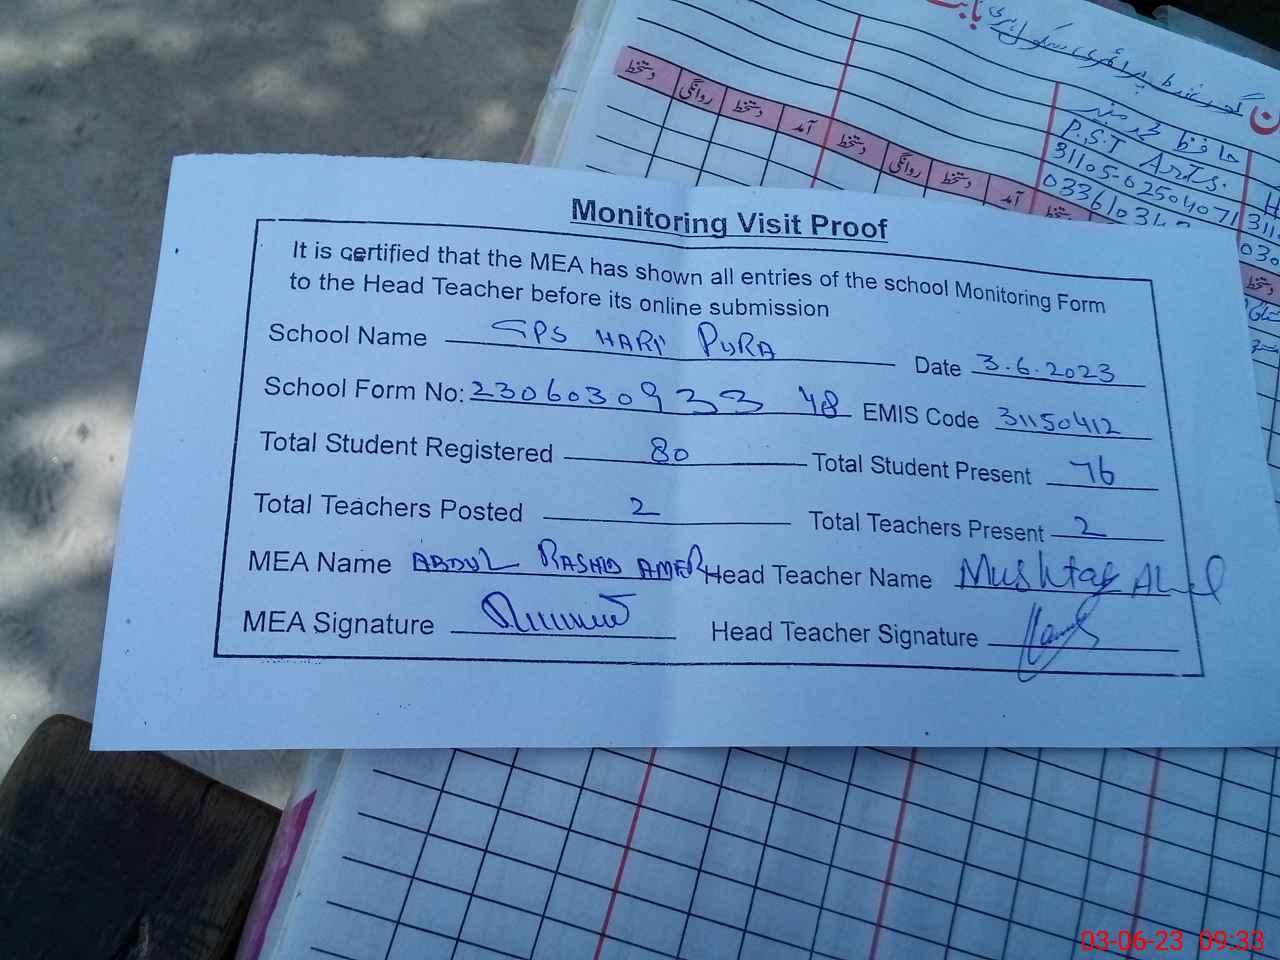 گورنمنٹ پرائمری سکول ہری
بابت
حافظ محمد
P.S.T Arts.
31105-02504071
033610342
دستخط روانگی دستخط آمد دستخط روانگی دستخط آمد دستخط
Monitoring Visit Proof
It is certified that the MEA has shown all entries of the school Monitoring Form
to the Head Teacher before its online submission
School Name GPS HARI PURA Date 3.6.2023
School Form No: 230603093348 EMIS Code 31150412
Total Student Registered 80 Total Student Present 76
Total Teachers Posted 2 Total Teachers Present 2
MEA Name ABDUL RASHID AMER Head Teacher Name Mushtaq Ahmed
MEA Signature Head Teacher Signature
03-06-23 09:33